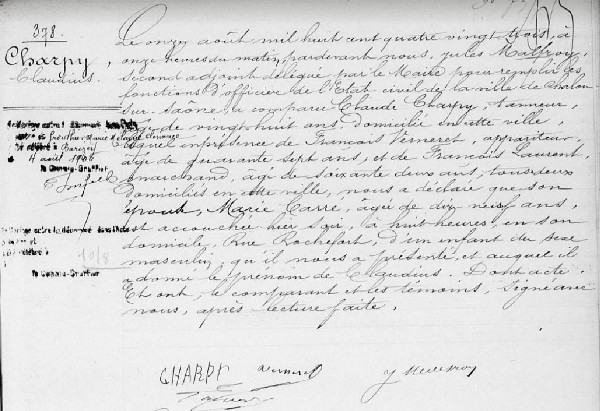 378.
Charpy
Claudius.
4 août 1906
Le onze août mil huit cent quatre vingt trois, à
onze heures du matin, pardevant nous, Jules Malfroy,
second adjoint délégué par le Maire pour remplir les
fonctions d'officier de l'Etat civil de la ville de Chalon
sur-Saône, a comparu Claude Charpy, tanneur,
âgé de vingt huit ans, domicilié en cette ville,
lequel en présence de François Verneret, appariteur,
âgé de quarante sept ans, et de François Laurent,
marchand, âgé de soixante deux ans, tous deux
domiciliés en cette ville, nous a déclaré que son
épouse, Marie Carré, âgée de dix neuf ans,
est accouchée hier soir, à huit heures, en son
domicile, Rue Rochefort, d'un enfant du sexe
masculin, qu'il nous a présenté, et auquel il
a donné le prénom de Claudius. Dont acte.
Et ont, le comparant et les témoins, signé avec
nous, après lecture faite.
CHARPY